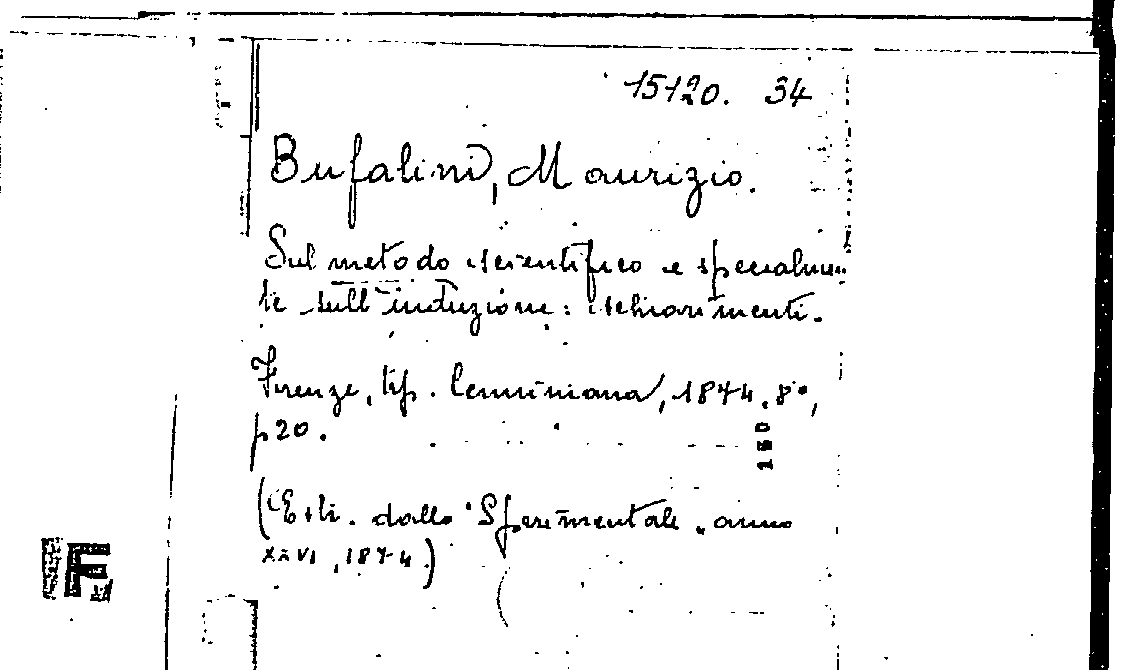 15120. 34
Bufalini, Maurizio.
Sul metodo scientifico e specialmen-
te sull'induzione: schiarimenti.
Firenze, tip. Cenniniana, 1874. 8°,
p 20.
150
(Estr. dallo "Sperimentale" anno
XXVI, 1874.)
IF